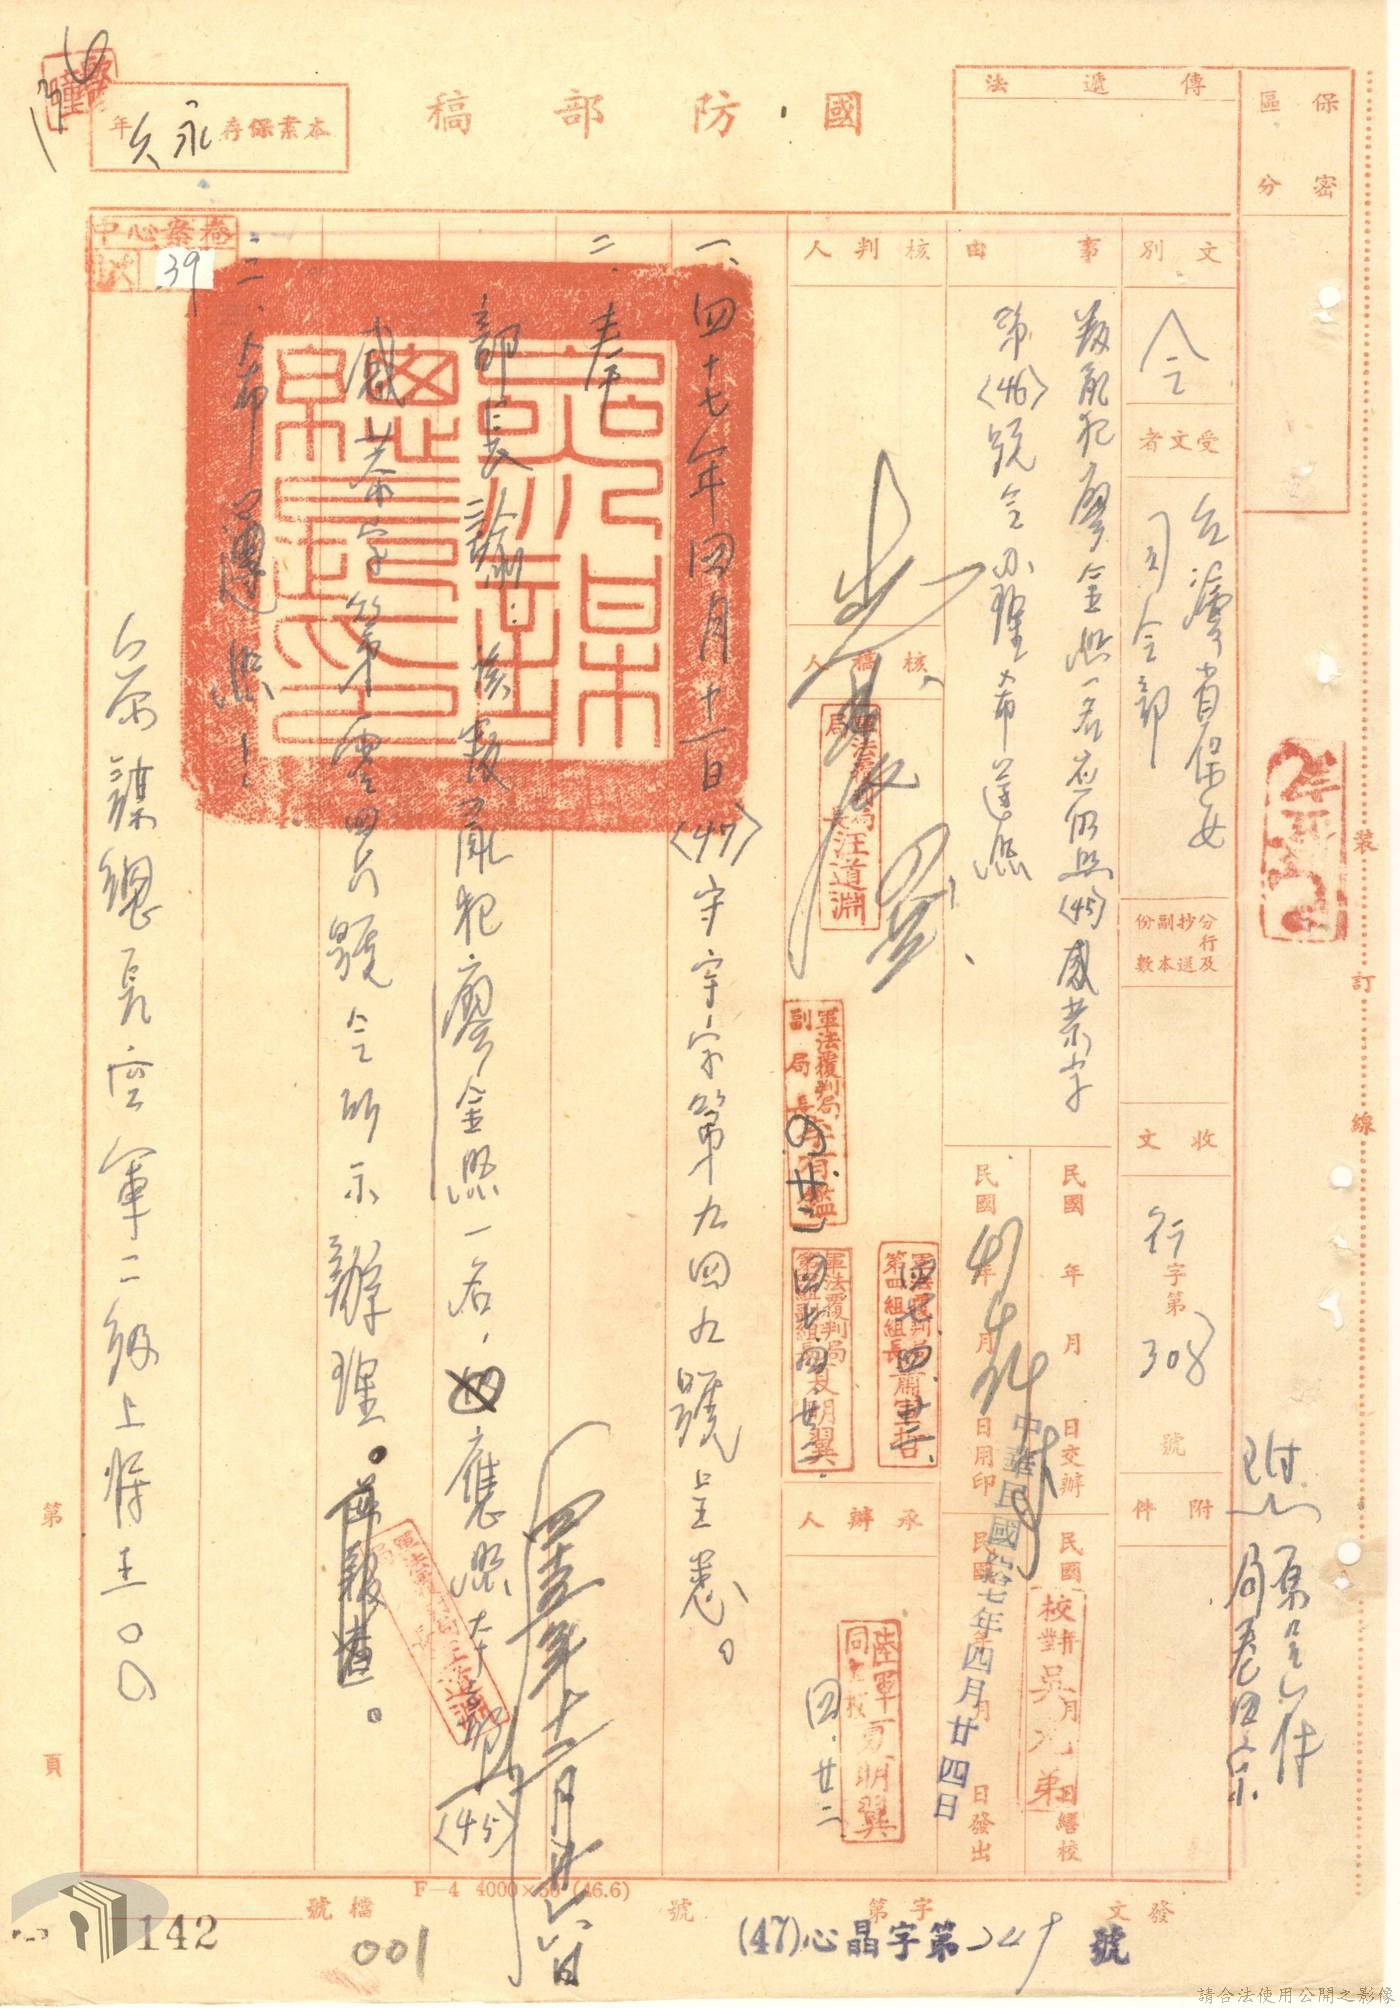 國防部稿
本案保存永久年
保密區分
傳遞法
文別
令
受文者
台灣省保安
司令部
分行及抄送副本份數
收文
行字第308號
附件
附原呈乙件
事由
叛亂犯廖金照一名应仍照(45)
第(46)號令办理希遵照
民國 年 月 日交辦
民國47年 月 日用印
中華民國 年四月廿四日
民國 年 月 日繕校
民國 年 月 日發出
校對
核判人
核稿人
軍法覆判局局長汪道淵
軍法覆判局副局長
軍法覆判局第四組組長
四七、四、廿二、
承辦人
四、廿二
一、四十七年四月十一日(47)守字第九四九號呈悉。
二、奉
部長諭：
叛亂犯廖金照一名，應照本部(45)
四十五年十二月廿六日
字第零四六號令所示辦理。
三、希遵照！
參謀總長空軍二級上將王〇〇
卷案中心
39
裝訂線
第 頁
F—4 4000×50 (46.6)
檔號
001
142
發文 字第 號
(47)心晶字第 號
請合法使用公開之影像